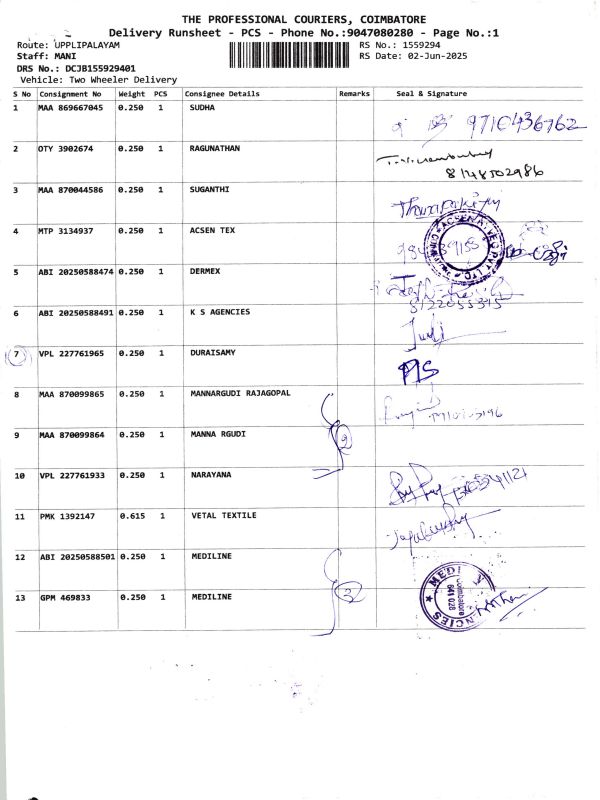 THE PROFESSIONAL COURIERS, COIMBATORE
Delivery Runsheet - PCS - Phone No.:9047080280 - Page No.:1
Route: UPPLIPALAYAM RS No.: 1559294
Staff: MANI RS Date: 02-Jun-2025
DRS No.: DCJB155929401
Vehicle: Two Wheeler Delivery
S No Consignment No Weight PCS Consignee Details Remarks Seal & Signature
1 MAA 869667045 0.250 1 SUDHA 9710436762
2 OTY 3902674 0.250 1 RAGUNATHAN 8148502986
3 MAA 870044586 0.250 1 SUGANTHI
4 MTP 3134937 0.250 1 ACSEN TEX
5 ABI 20250588474 0.250 1 DERMEX
6 ABI 20250588491 0.250 1 K S AGENCIES
7 VPL 227761965 0.250 1 DURAISAMY
8 MAA 870099865 0.250 1 MANNARGUDI RAJAGOPAL
9 MAA 870099864 0.250 1 MANNA RGUDI 2
10 VPL 227761933 0.250 1 NARAYANA
11 PMK 1392147 0.615 1 VETAL TEXTILE
12 ABI 20250588501 0.250 1 MEDILINE
13 GPM 469833 0.250 1 MEDILINE
Coimbatore
641 028